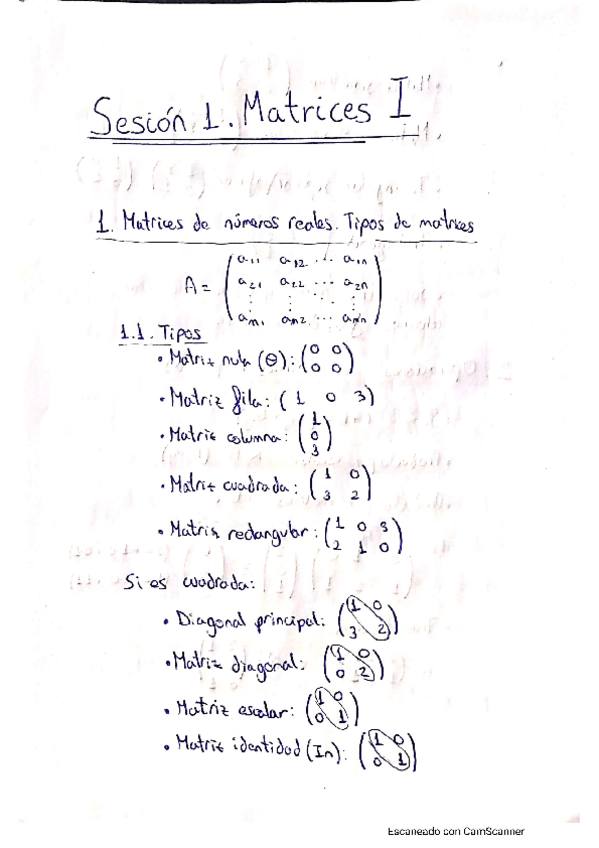 Sesión 1. Matrices I
1. Matrices de números reales. Tipos de matrices
A = ( a11 a12 ... a1n
a21 a22 ... a2n
⋮ ⋮ ⋱ ⋮
am1 am2 ... amn )
1.1. Tipos
• Matriz nula (Θ): ( 0 0
0 0 )
• Matriz fila: ( 1 0 3 )
• Matriz columna: ( 1
0
3 )
• Matriz cuadrada: ( 1 0
3 2 )
• Matriz rectangular: ( 1 0 3
2 1 0 )
Si es cuadrada:
• Diagonal principal: ( 1 0
3 2 )
• Matriz diagonal: ( 1 0
0 2 )
• Matriz escalar: ( 1 0
0 1 )
• Matriz identidad (In): ( 1 0
0 1 )
Escaneado con CamScanner